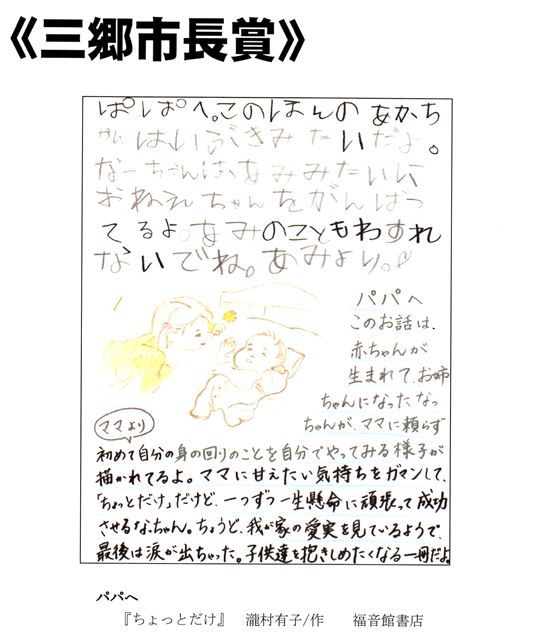 《三郷市長賞》
ぱぱへ。このほんの あかち
がはいぶきみたいだよ。
なーちゃんは、あみみたいに
おねえちゃんをがんばっ
てるよ。あみのこともわすれ
ないでね。あみより。
パパへ
このお話は、
赤ちゃんが
生まれて、お姉
ちゃんになったなっ
ちゃんが、ママに頼らず
ママより
初めて自分の身の回りのことを自分でやってみる様子が
描かれてるよ。ママに甘えたい気持ちをガマンして、
「ちょっとだけ」だけど、一つずつ一生懸命に頑張って成功
させるなっちゃん。ちょうど、我が家の愛実を見ているようで、
最後は涙が出ちゃった。子供達を抱きしめたくなる一冊だよ。
パパへ
『ちょっとだけ』 瀧村有子/作 福音館書店